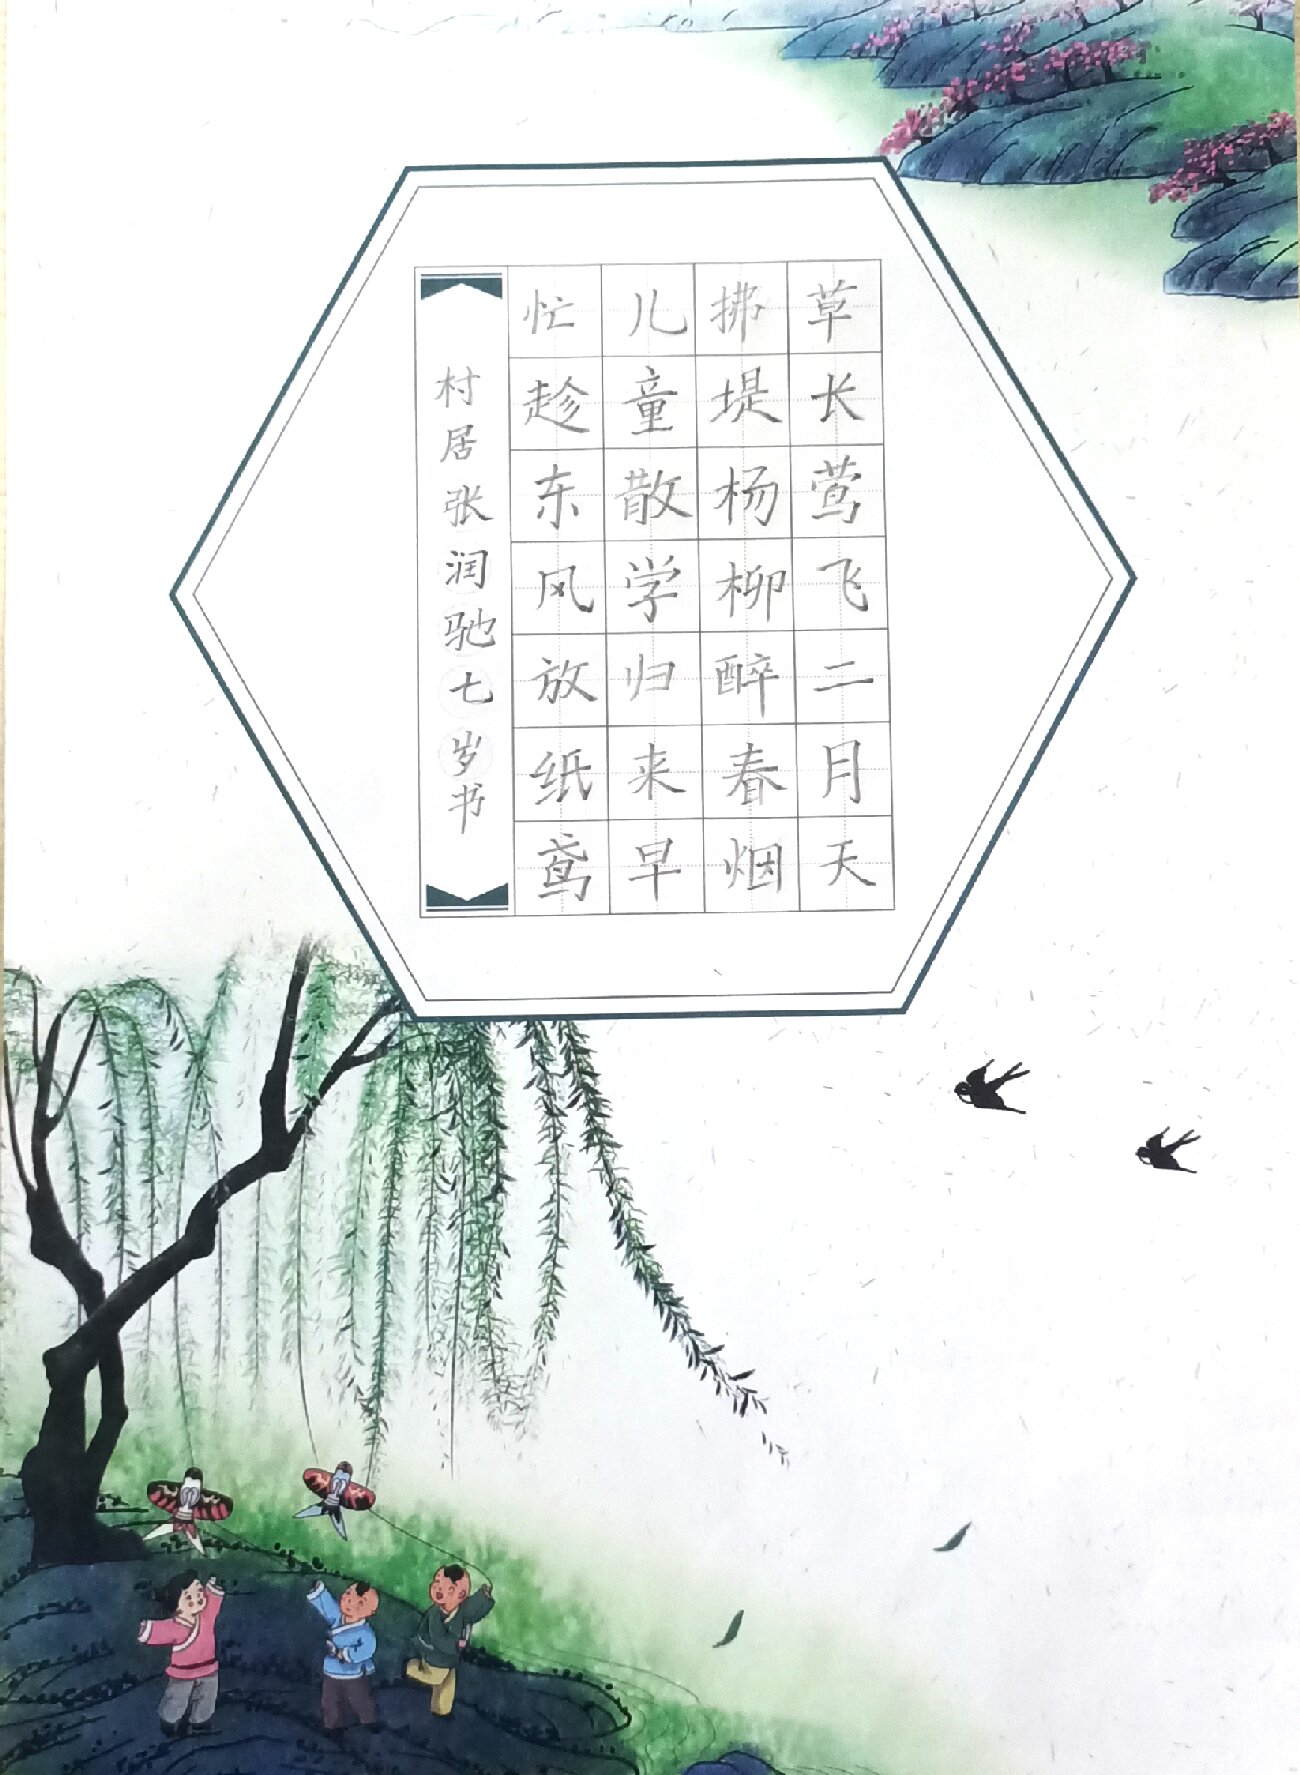 草长莺飞二月天
拂堤杨柳醉春烟
儿童散学归来早
忙趁东风放纸鸢
村居张润驰七岁书